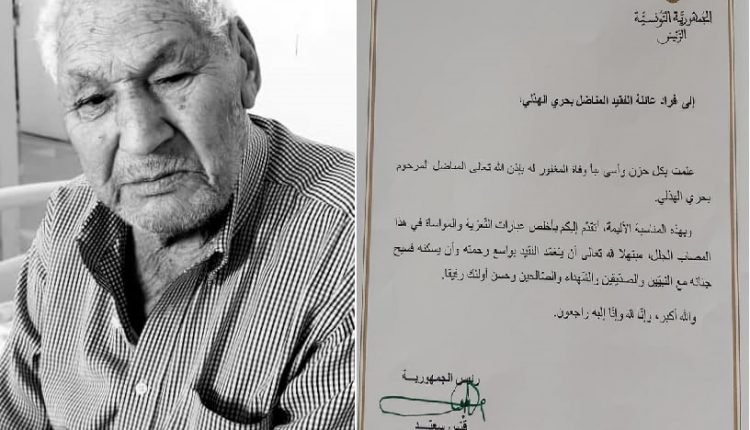 الجمهورية التونسية
الرئيس
إلى أفراد عائلة الفقيد المناضل بحري الهذلي،
علمت بكل حزن وأسى نبأ وفاة المغفور له بإذن الله تعالى المناضل المرحوم
بحري الهذلي.
وبهذه المناسبة الأليمة، أتقدّم إليكم بأخلص عبارات التّعزية والمواساة في هذا
المصاب الجلل، مبتهلا لله تعالى أن يتغمّد الفقيد بواسع رحمته وأن يسكنه فسيح
جنانه مع النبيّين والصدّيقين والشّهداء والصّالحين وحسن أولئك رفيقا.
والله أكبر، وإنّا لله وإنّا إليه راجعون.
رئيس الجمهورية
قيس سعيد